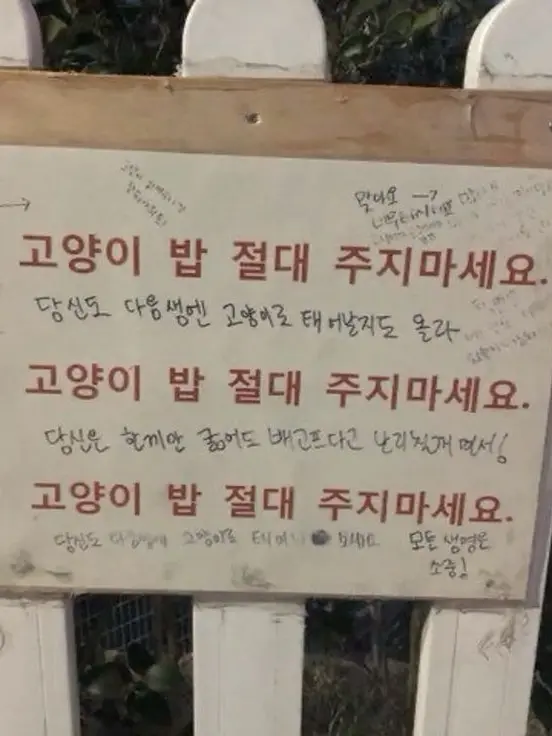 맞아요 →
고양이 밥 절대 주지마세요.
당신도 다음생엔 고양이로 태어날지도 몰라
고양이 밥 절대 주지마세요.
당신은 한끼만 굶어도 배고프다고 난리칠꺼면서!
고양이 밥 절대 주지마세요.
당신도 다음생에 고양이로 태어나 보세요
모든 생명은
소중!